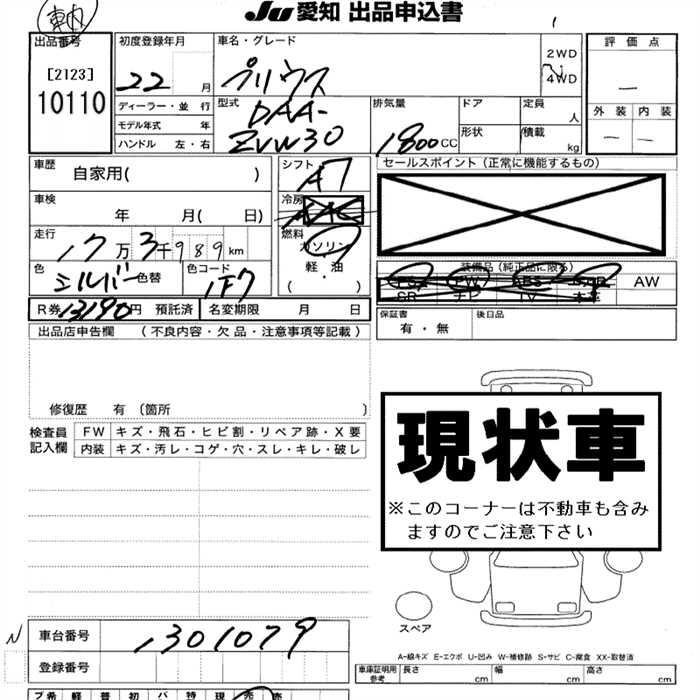 車内
JU 愛知 出品申込書
出品番号
[2123]
10110
初度登録年月
22 月
ディーラー・並 行
モデル年式 年
ハンドル 左・右
車名・グレード
プリウス
2WD
4WD
型式 DAA-
ZVW30
排気量
1800 CC
ドア
形状
定員
人
積載
kg
評 価 点
—
外 装 内 装
— —
車歴
自家用( )
車検
年 月( 日)
走行
17万3千989km
色 シルバー 色替
色コード 1F7
シフト
A7
冷房
燃料
ガソリン
・
軽 油
( ・ )
セールスポイント(正常に機能するもの)
装備品(純正品に限る)
PS PW ABS エアB AW
SR ナビ TV 本革
R券 13190円 預託済 名変期限 月 日
保証書
有・無
後日品
出品店申告欄 (不良内容・欠品・注意事項等記載)
修復歴 有 (箇所 )
検査員
記入欄
FW キズ・飛石・ヒビ割・リペア跡・X要
内装 キズ・汚レ・コゲ・穴・スレ・キレ・破レ
現状車
※このコーナーは不動車も含み
ますのでご注意下さい
スペア
A-線キズ E-エクボ U-凹み W-補修跡 S-サビ C-腐食 XX-取替済
N
車台番号 1301079
登録番号
車庫証明用
参考
長さ cm 幅 cm 高さ cm